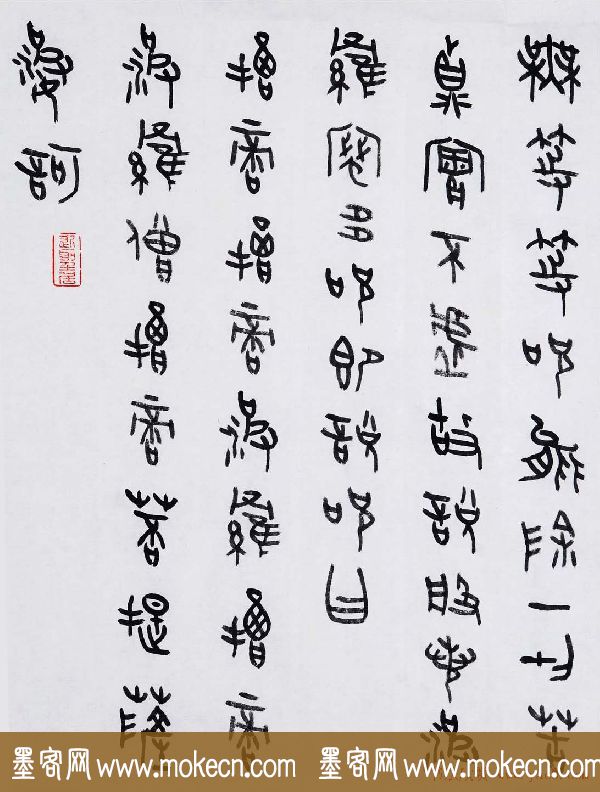 無等等呪能除一切苦
真實不虛故說般若波
羅蜜多呪即說呪曰
揭帝揭帝波羅揭帝
波羅僧揭帝菩提薩
婆訶
墨客网 www.mokecn.com 墨客网 www.mokecn.com